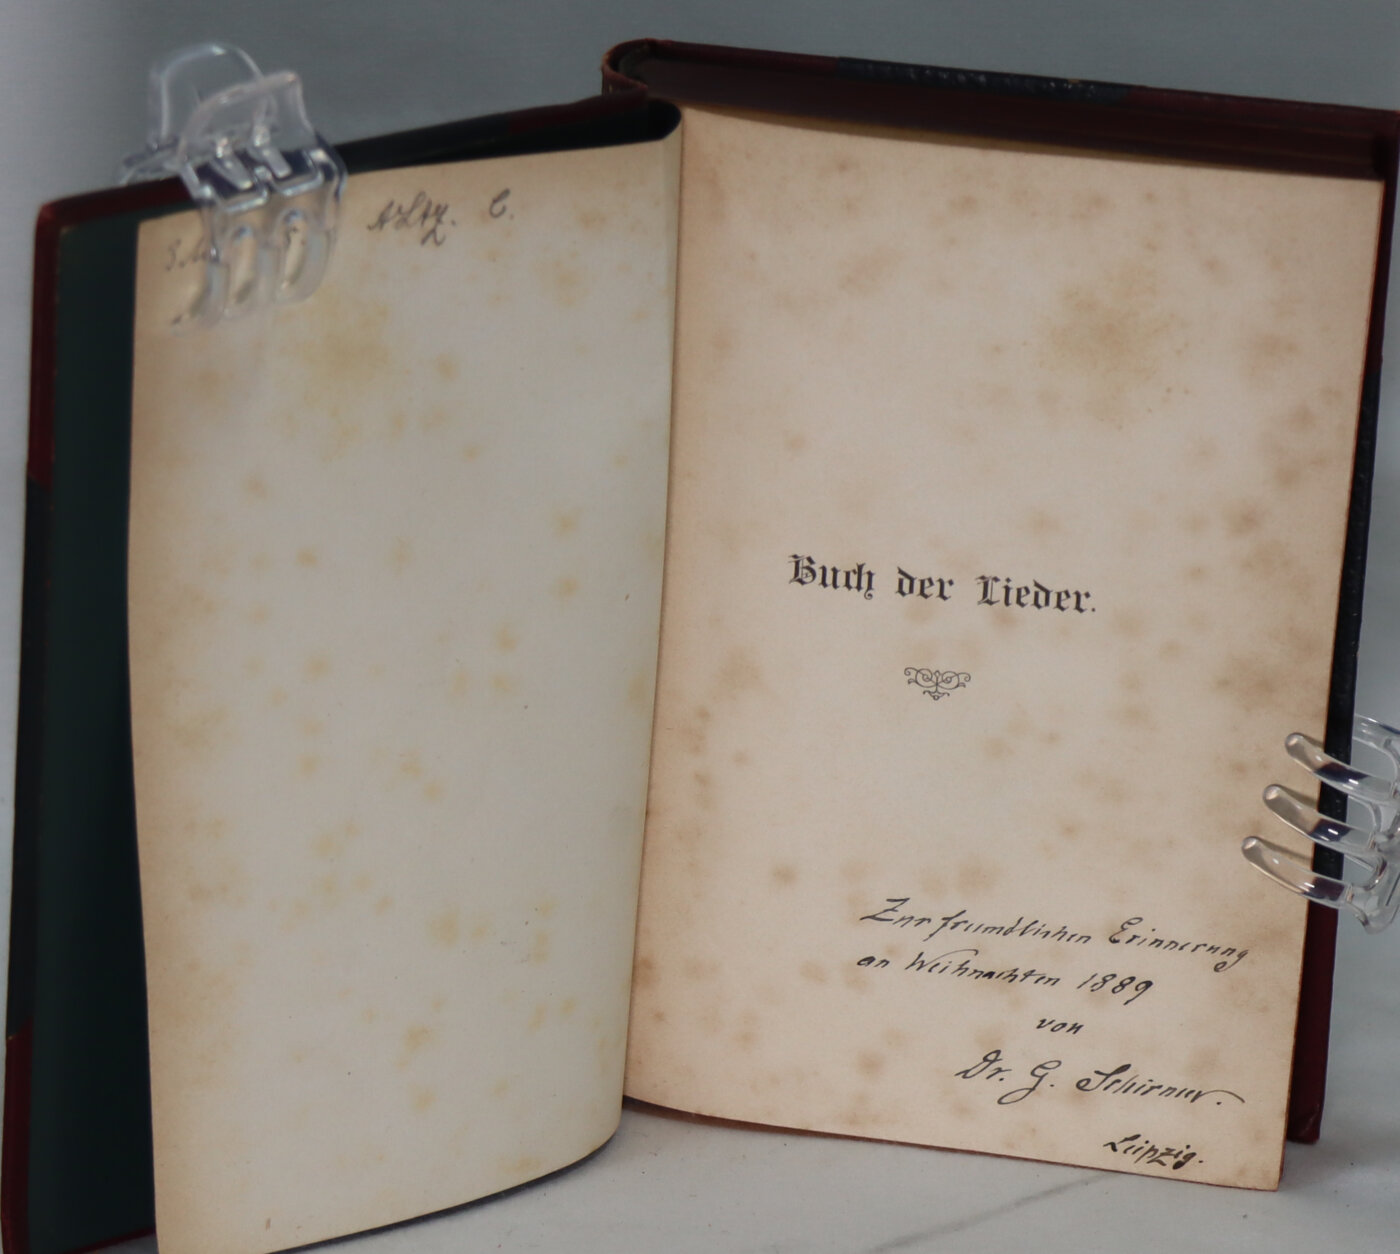 Buch der Lieder.
Zur freundlichen Erinnerung
an Weihnachten 1889
von
Dr. G. Schirmer.
Leipzig.